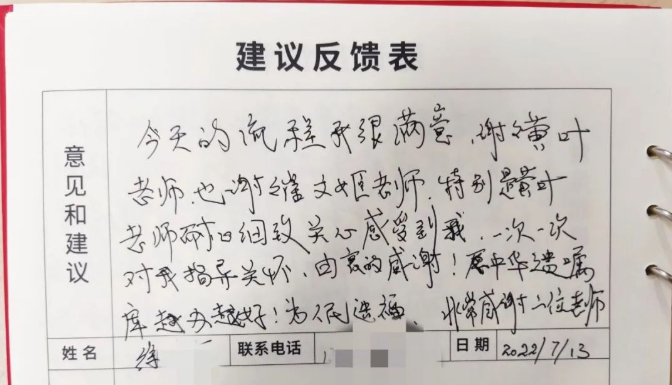 建议反馈表
意见和建议
今天的流程我很满意，谢谢黄叶
老师，也谢谢 文姬老师，特别是黄叶
老师耐心细致关心感受到我，一次一次
对我指导关怀，由衷的感谢！愿中华遗嘱
库越办越好！为人民造福 非常感谢二位老师
姓名 徐 联系电话 日期 2022/7/13